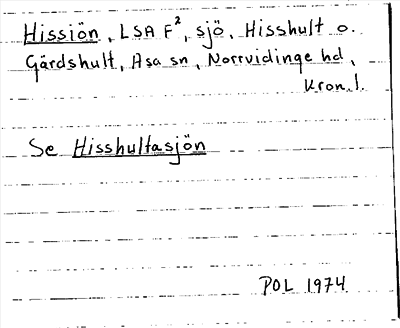 Hissiön, LSA F², sjö, Hisshult o.
Gårdshult, Asa sn, Norrvidinge hd,
Kron.l.
Se Hisshultasjön
POL 1974